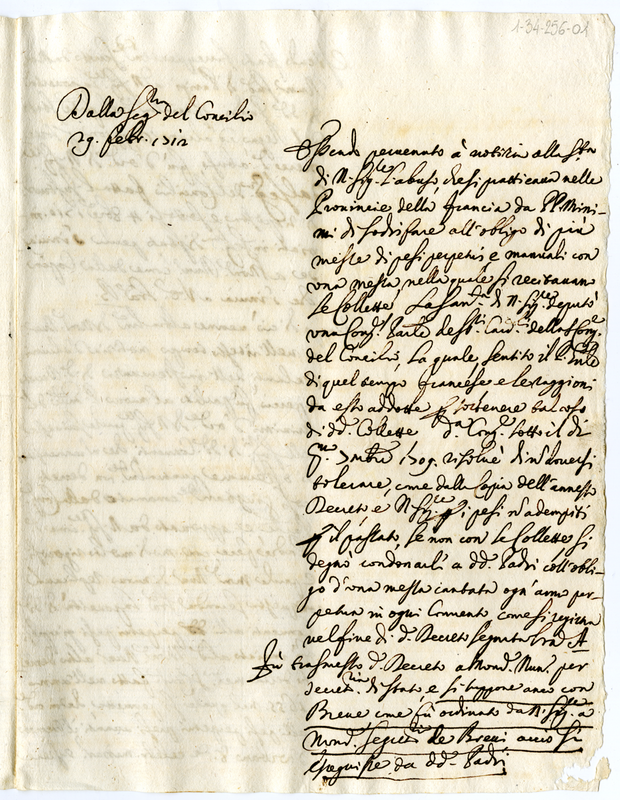 1-34-256-01
Dalla Seg.ria del Concilio
29. febr. 1712
Essendo peruenuto à notizia alla S.tà
di N. Sig.re l'abuso che si pratticaua nelle
Prouincie della francia da PP. Mini-
mi di sodisfare all'obligo di più
messe di pesi perpetui e manuali con
una messa nella quale si recitauano
le Collette La San.tà di N. Sig.re deputò
una Cong.e Part.e de SS.ri Card. della S. Cong.
del Concilio, la quale sentito il P. Gnle
di quel tempo francese e le raggioni
da esso addotte p sostenere tal uso
di dd. Collette d.a Cong.e sotto il di
7mbre 1709. risoluè di n douersi
tolerare, come dalla Copia dell'annesso
Decreto, e N. Sig.re p i pesi n adempiti
p il passato, se non con le Collette si
degnò condonarli a dd. Padri coll'obli-
go d'una messa cantata ogn'anno per-
petua in ogni Conuento come si registra
nel fine di d. Decreto segnato A
Fù trasmesso d. Decreto a Mons. Nun. per
secret.ria di stato, e si suppone anco con
Breue come fù ordinato da N. Sig.re a
Mons. Segret.rio de Breui accio si
eseguisse da dd. Padri